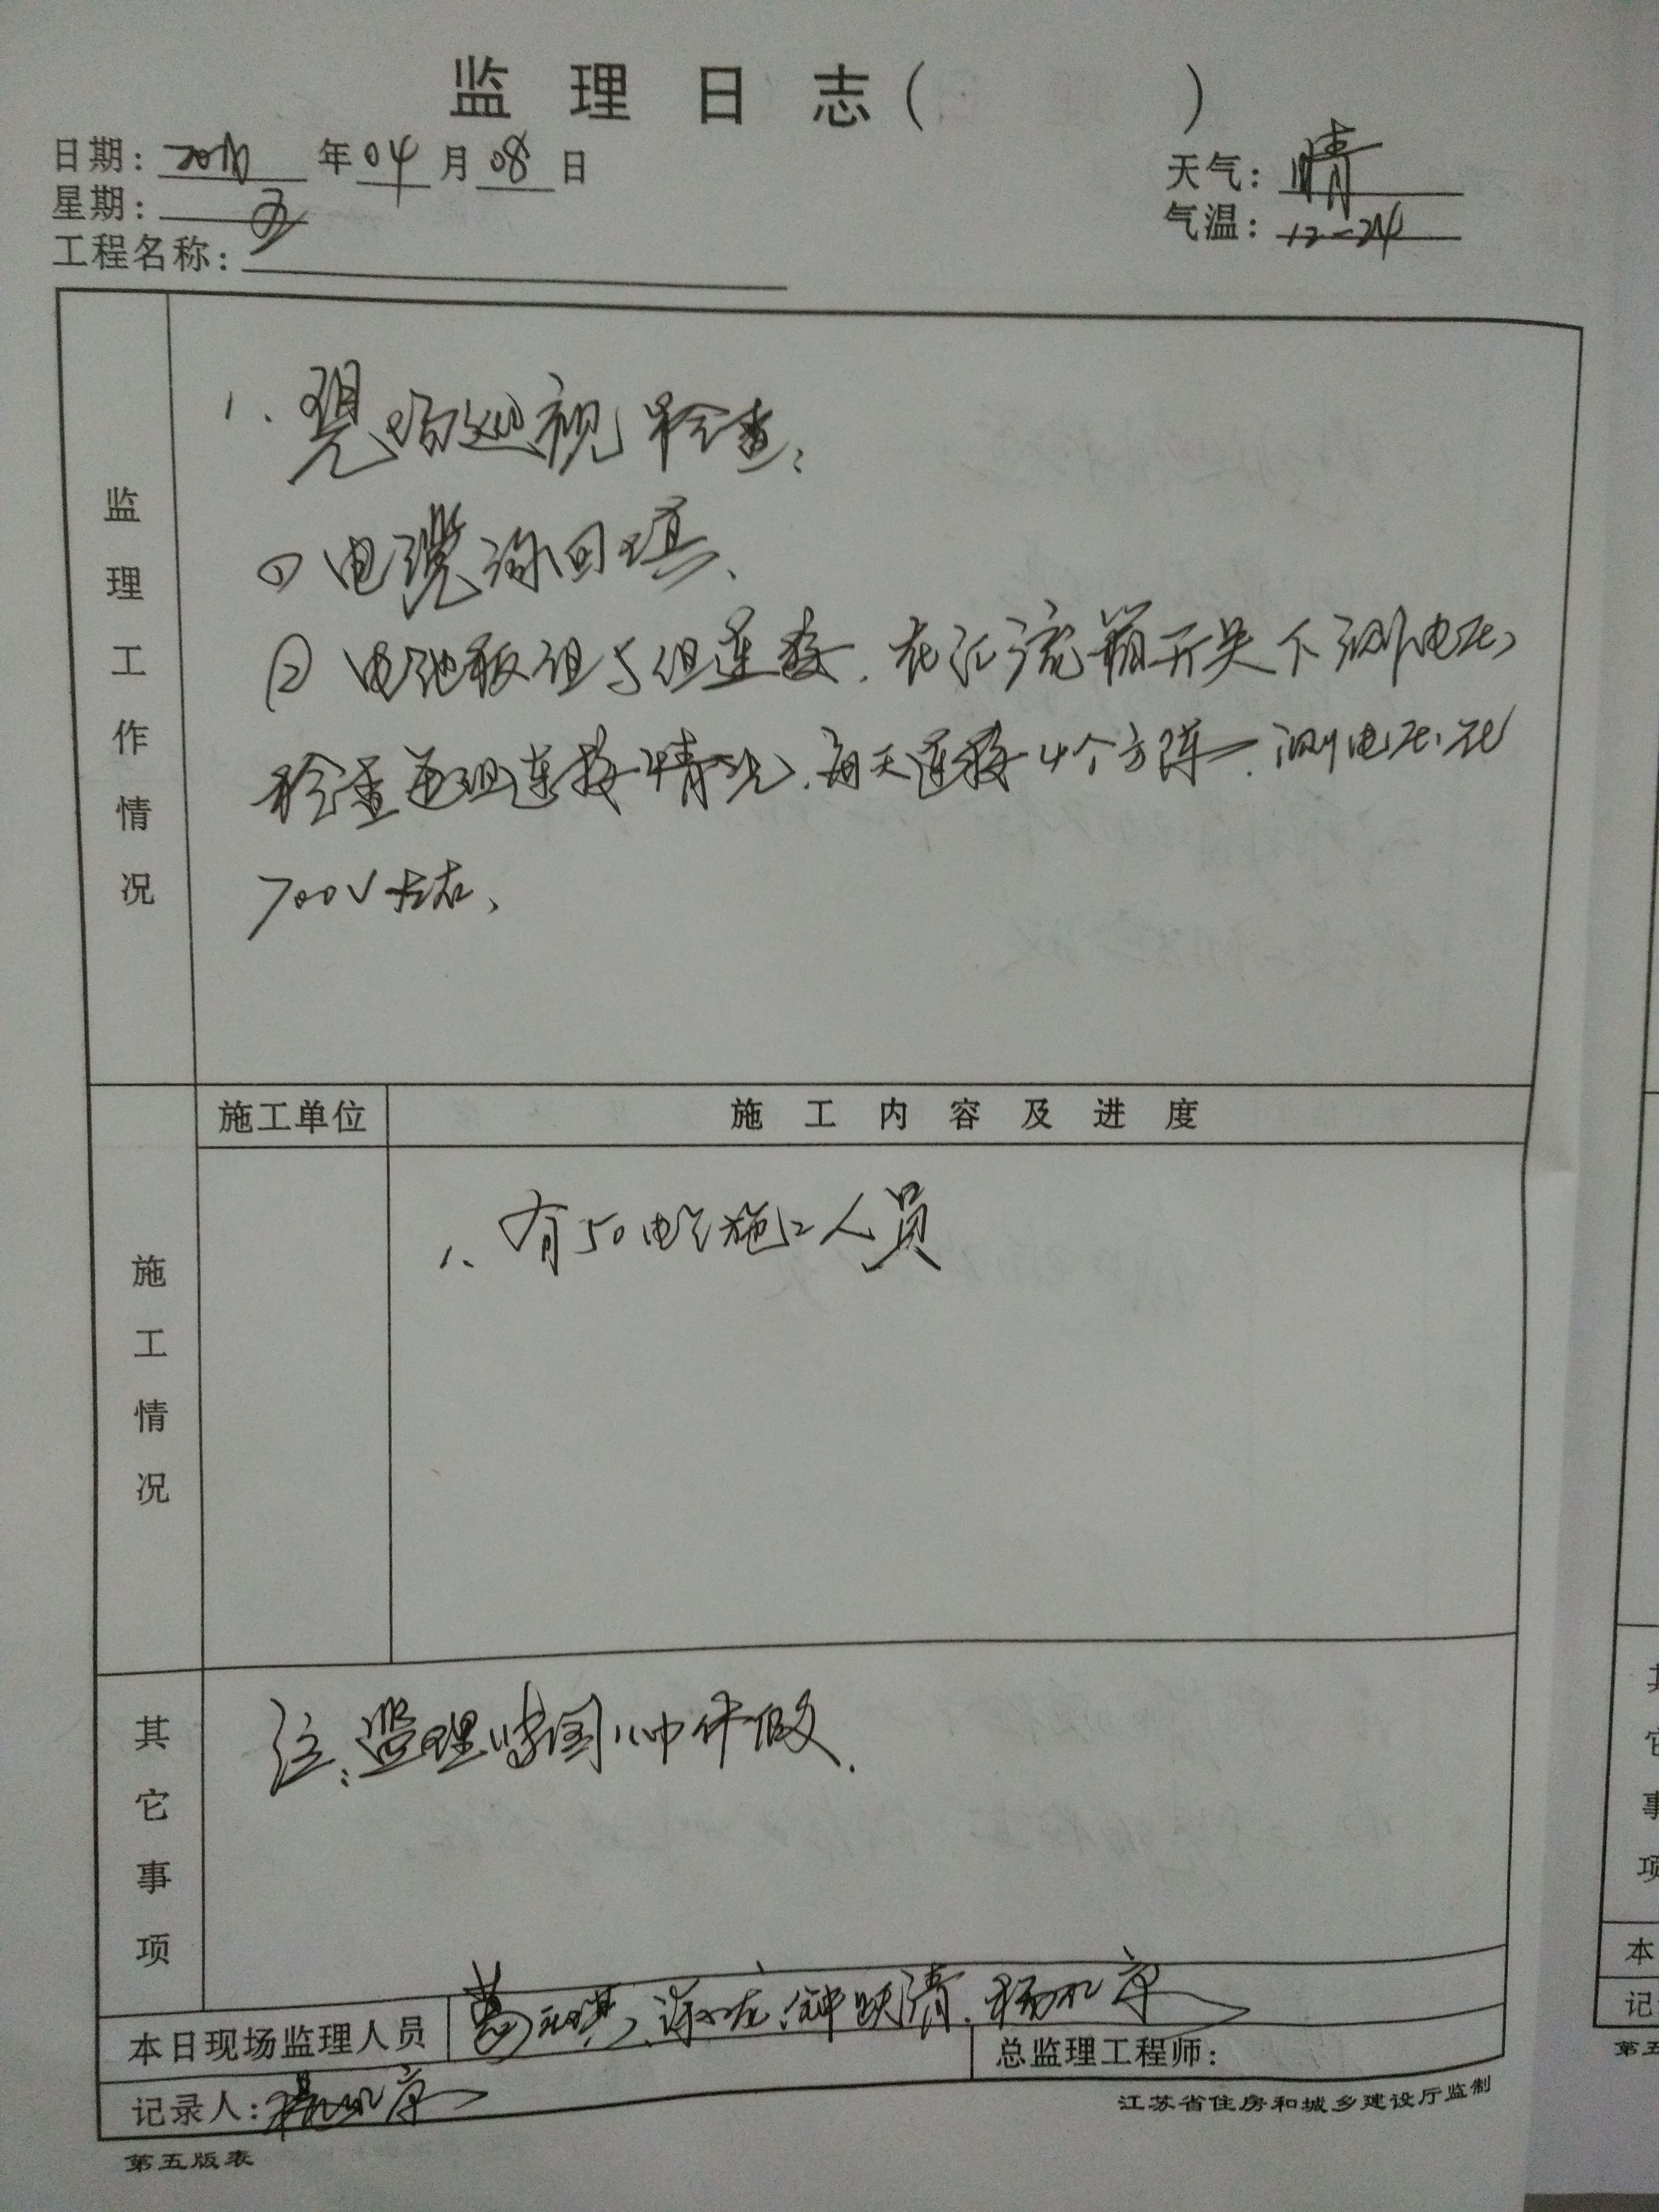 监理日志（ ）
日期：2016年04月08日
天气：晴
星期：五
气温：12-24
工程名称：
监理工作情况
1、现场巡视检查：
① 电缆沟回填、
② 电池板组与组连接，在汇流箱开关下测电压，
检查每组连接情况，每天连接4个方阵，测电压在
700V左右、
施工情况
施工单位
施工内容及进度
1、有50电气施工人员
其它事项
注：监理 休假.
本日现场监理人员
钟跃清、杨
总监理工程师：
记录人：杨
江苏省住房和城乡建设厅监制
第五版表
本
记
第五